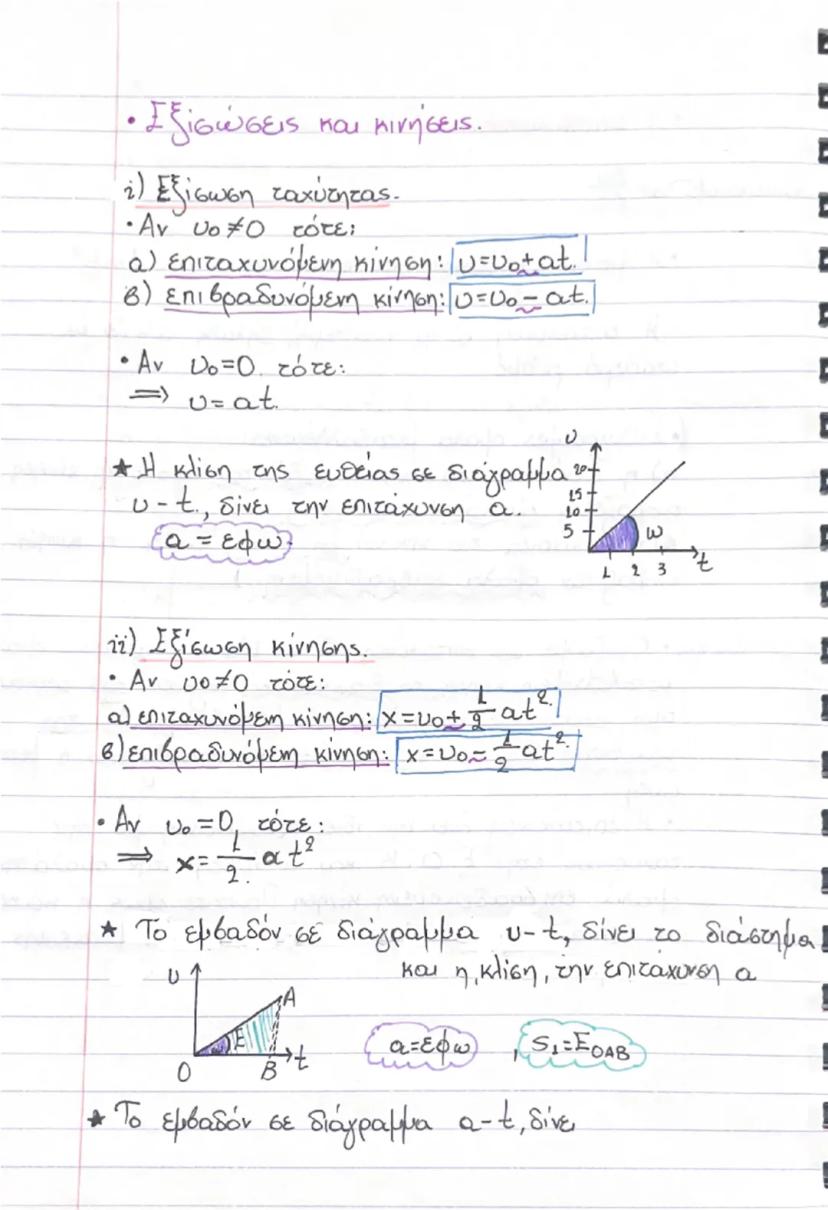 • Εξισώσεις και κινήσεις.
i) Εξίσωση ταχύτητας.
• Αν υ₀ ≠ 0 τότε:
α) επιταχυνόμενη κίνηση: υ=υ₀+αt.
β) επιβραδυνόμενη κίνηση: υ=υ₀-αt.
• Αν υ₀=0. τότε:
⇒ υ=αt.
★ Η κλίση της ευθείας σε διάγραμμα
υ-t, δίνει την επιτάχυνση α.
α = εφω
υ
20
15
10
5
ω
1 2 3 t
ii) Εξίσωση κίνησης.
• Αν υ0≠0 τότε:
α) επιταχυνόμενη κίνηση: x=υ₀+ 1/2 αt².
β) επιβραδυνόμενη κίνηση: x=υ₀- 1/2 αt².
• Αν υ₀=0, τότε:
⇒ x= 1/2. αt²
★ Το εμβαδόν σε διάγραμμα υ-t, δίνει το διάστημα
και η, κλίση, την επιταχυνση α
υ
A
ω E
O B t
α=εφω , S₁=E_OAB
★ Το εμβαδόν σε διάγραμμα α-t, δίνει